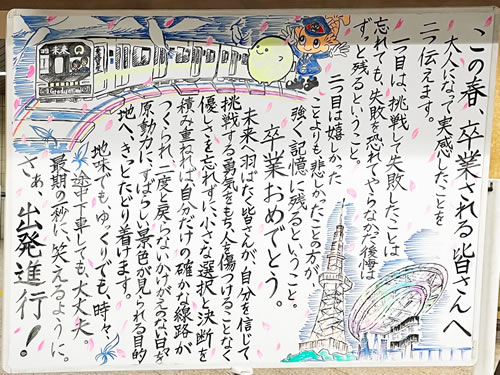 この春、卒業される皆さんへ
大人になって実感したことを
二つ伝えます。
一つ目は、挑戦して失敗したことは
忘れても、失敗を恐れてやらなかった後悔は
ずっと残るということ。
二つ目は嬉しかった
ことよりも悲しかったことの方が
強く記憶に残るということ。
卒業おめでとう。
未来へ羽ばたく皆さんが、自分を信じて
挑戦する勇気をもち、人を傷つけることなく
優しさを忘れずに、小さな選択と決断を
積み重ねれば自分だけの確かな線路が
つくられ、二度と戻らないかけがえのない日々が
原動力に、すばらしい景色が見られる目的
地へ、きっとたどり着けます。
地味でも、ゆっくりでも、時々、
途中下車しても、大丈夫。
最期の秒に、笑えるように。
さぁ、出発進行!
未来